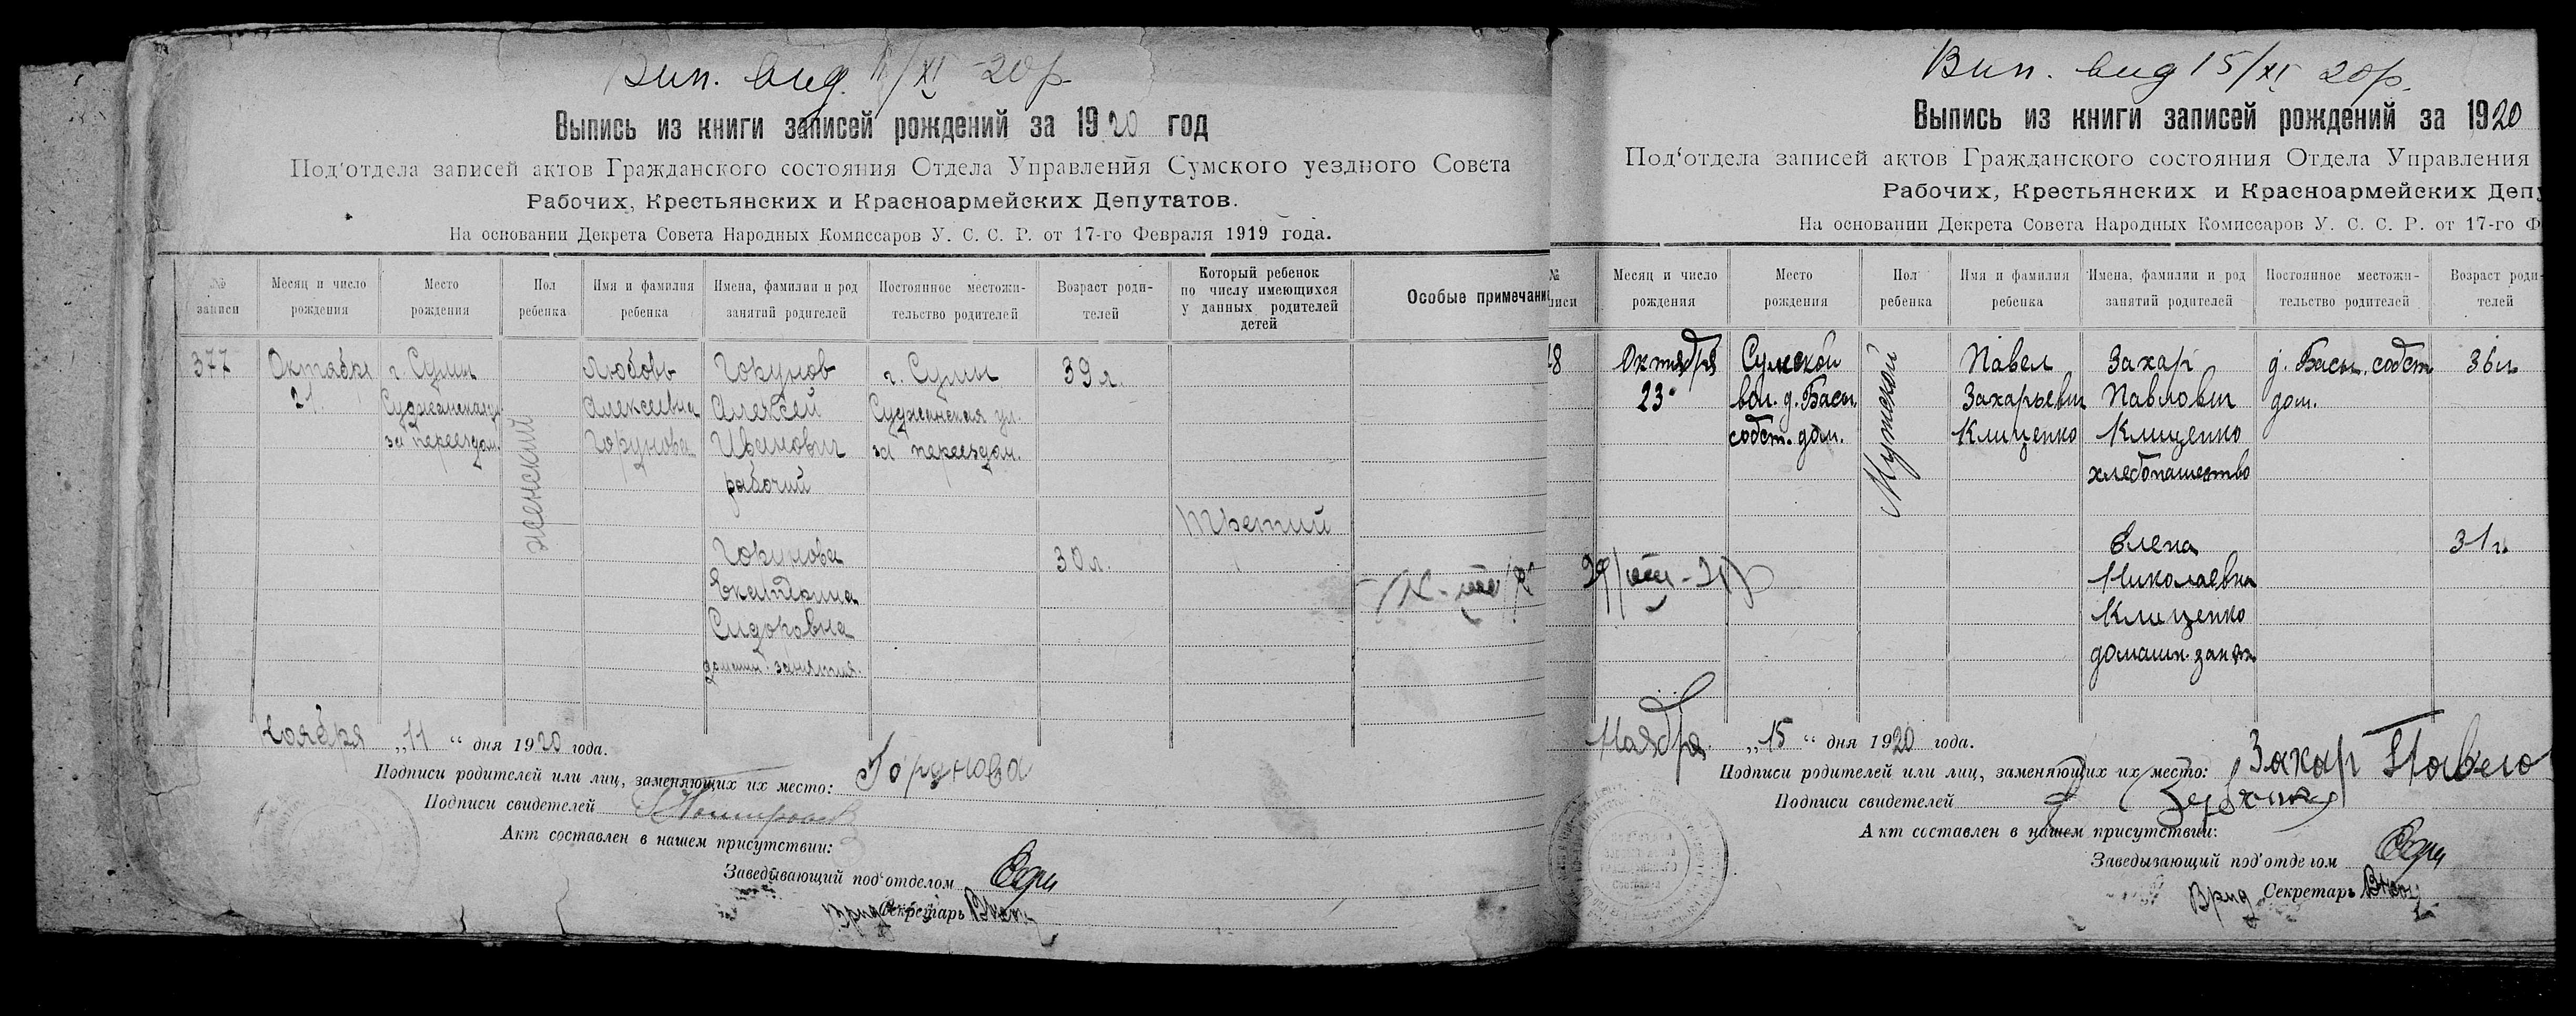 Вип. вид. 11/XI 20р.
Выпись из книги записей рождений за 1920 год
Под'отдела записей актов Гражданского состояния Отдела Управления Сумского уездного Совета
Рабочих, Крестьянских и Красноармейских Депутатов.
На основании Декрета Совета Народных Комиссаров У. С. С. Р. от 17-го Февраля 1919 года.
№ записи
Месяц и число рождения
Место рождения
Пол ребенка
Имя и фамилия ребенка
Имена, фамилии и род занятий родителей
Постоянное местожи-
тельство родителей
Возраст роди-
телей
Который ребенок
по числу имеющихся
у данных родителей
детей
Особые примечани
377
Октября
21.
г. Сумы
Суджанская ул.
за переездом.
женский
Любовь
Алексеевна
Горунова
Горунов
Алексей
Иванович
рабочий
Горунова
Екатерина
Сидоровна
домашн. занятия.
г. Сумы
Суджанская ул.
за переездом.
39 л.
30 л.
третий
Ноября „11“ дня 1920 года.
Подписи родителей или лиц, заменяющих их место: Горунова
Подписи свидетелей
Акт составлен в нашем присутствии:
Заведывающий под'отделом
Врид Секретарь
Вип. вид 15/XI 20р.
Выпись из книги записей рождений за 1920
Под'отдела записей актов Гражданского состояния Отдела Управления
Рабочих, Крестьянских и Красноармейских Депу
На основании Декрета Совета Народных Комиссаров У. С. С. Р. от 17-го Ф
№
писи
Месяц и число
рождения
Место
рождения
Пол
ребенка
Имя и фамилия
ребенка
Имена, фамилии и род
занятий родителей
Постоянное местожи-
тельство родителей
Возраст роди-
телей
8
Октября
23
Сумской
вол. д. Басы.
собст. дом.
Мужской
Павел
Захарьевич
Клищенко
Захар
Павлович
Клищенко
хлебопашество
Елена
Николаевна
Клищенко
домашн. занят.
д. Басы, собст
дом.
36 л.
31 г.
29/VIII-21р
Ноября „15“ дня 1920 года.
Подписи родителей или лиц, заменяющих их место: Захар Павло
Подписи свидетелей
Акт составлен в нашем присутствии:
Заведызающий под'отделом
Врид Секретарь